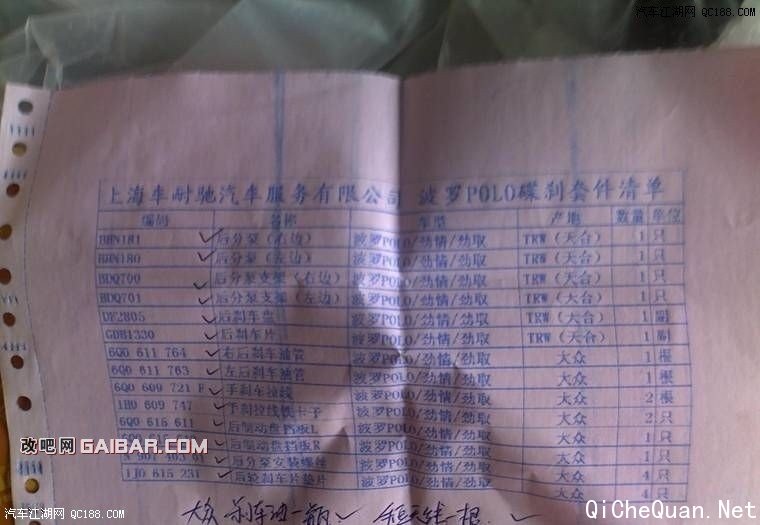 汽车江湖网 QC188.COM
上海车耐驰汽车服务有限公司 波罗POLO碟刹套件清单
编码 名称 车型 产地 数量 单位
BHN181 后分泵（右边） 波罗POLO/劲情/劲取 TRW（天合） 1 只
BHN180 后分泵（左边） 波罗POLO/劲情/劲取 TRW（天合） 1 只
BDQ700 后分泵支架（右边） 波罗POLO/劲情/劲取 TRW（天合） 1 只
BDQ701 后分泵支架（左边） 波罗POLO/劲情/劲取 TRW（天合） 1 只
DF2805 后刹车盘 波罗POLO/劲情/劲取 TRW（天合） 1 副
GDB1330 后刹车片 波罗POLO/劲情/劲取 TRW（天合） 1 副
6Q0 611 764 右后刹车油管 波罗POLO/劲情/劲取 大众 1 根
6Q0 611 763 左后刹车油管 波罗POLO/劲情/劲取 大众 1 根
6Q0 609 721 F 手刹车拉线 波罗POLO/劲情/劲取 大众 2 根
1H0 609 747 手刹拉线铁卡子 波罗POLO/劲情/劲取 大众 2 只
6Q0 615 611 后制动盘挡板L 波罗POLO/劲情/劲取 大众 1 只
后制动盘挡板R 波罗POLO/劲情/劲取 大众 1 只
后分泵安装螺丝 波罗POLO/劲情/劲取 大众 4 只
1J0 615 231 后轮刹车片垫片 波罗POLO/劲情/劲取 大众 4 只
大众 刹车油一瓶
改吧网 GAIBAR.COM
汽车江湖网 QC188.COM
QiCheQuan.Net